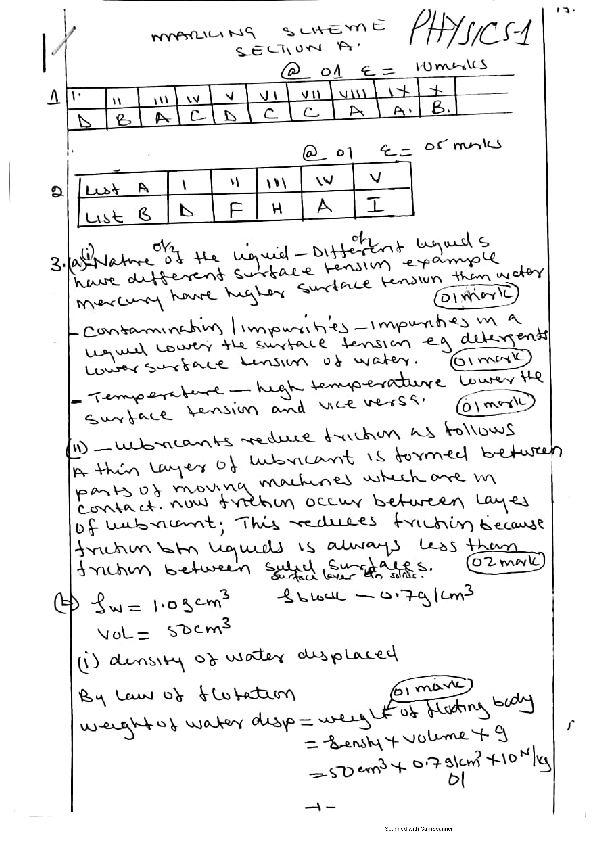 MARKING SCHEME PHYSICS-1
SECTION A.
@ 01 Σ = 10 marks
1 I. II III IV V VI VII VIII IX X
D B A C D C C A A. B.
@ 01 Σ = 05 marks
2 List A I II III IV V
List B D F H A I
3.(a)(i) Nature of the liquid – Different liquids
have different surface tension example
mercury have higher surface tension than water
01 mark
- Contamination / impurities – impurities in a
liquid lower the surface tension eg detergents
lower surface tension of water. 01 mark
- Temperature – high temperature lower the
surface tension and vice versa. 01 mark
(ii) – lubricants reduce friction as follows
A thin layer of lubricant is formed between
parts of moving machines which are in
contact. now friction occur between layes
of lubricant; This reduces friction because
friction btn liquids is always less than
friction between solid surfaces. 02 mark
(b) ρw = 1.0gcm³ ρblock – 0.7g/cm³
Vol = 50cm³
(i) density of water displaced
By law of flotation 01 mark
weight of water disp = weight of floating body
= density × volume × g
= 50cm³ × 0.7g/cm³ × 10 N/kg
01
-1-
Scanned with CamScanner